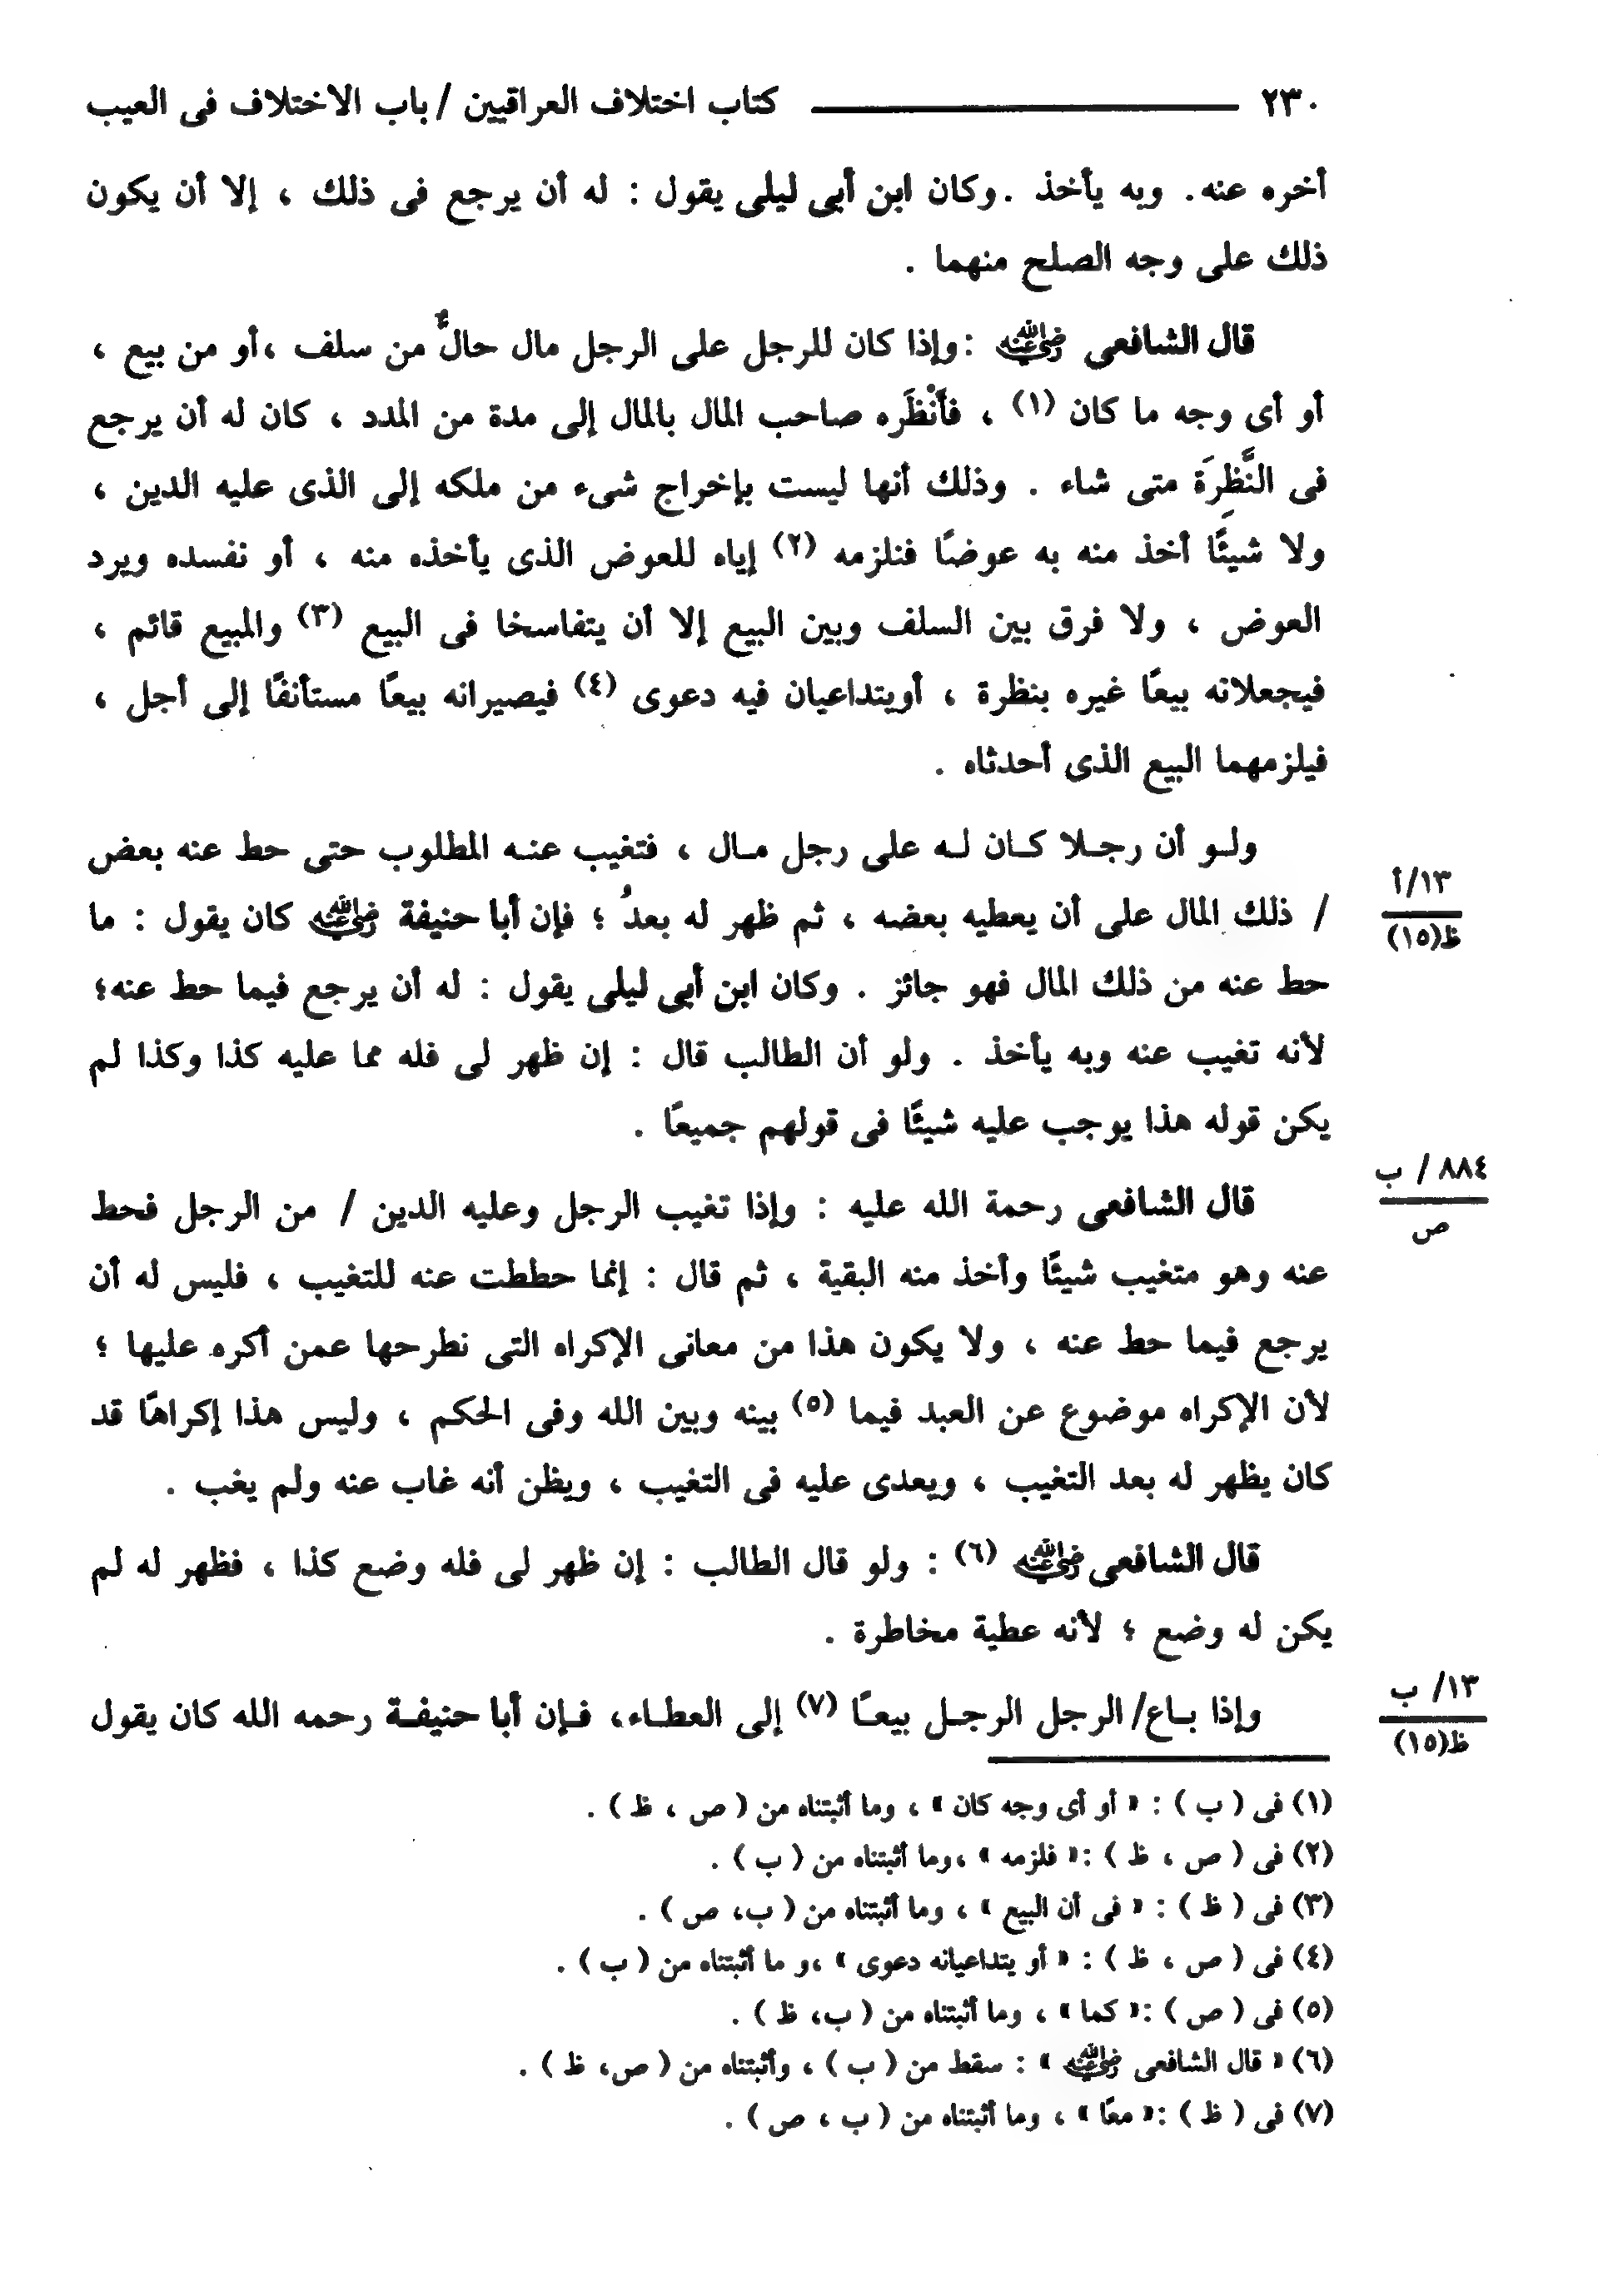 ٢٣٠ كتاب اختلاف العراقيين / باب الاختلاف فى العيب
أخره عنه. وبه يأخذ .وكان ابن أبى ليلى يقول : له أن يرجع فى ذلك ، إلا أن يكون
ذلك على وجه الصلح منهما .
قال الشافعى رضي الله عنه :وإذا كان للرجل على الرجل مال حالٌّ من سلف ،أو من بيع ،
أو أى وجه ما كان (١) ، فأَنْظَره صاحب المال بالمال إلى مدة من المدد ، كان له أن يرجع
فى النَّظِرَة متى شاء . وذلك أنها ليست بإخراج شىء من ملكه إلى الذى عليه الدين ،
ولا شيئًا أخذ منه به عوضًا فنلزمه (٢) إياه للعوض الذى يأخذه منه ، أو نفسده ويرد
العوض ، ولا فرق بين السلف وبين البيع إلا أن يتفاسخا فى البيع (٣) والمبيع قائم ،
فيجعلانه بيعًا غيره بنظرة ، أويتداعيان فيه دعوى (٤) فيصيرانه بيعًا مستأنفًا إلى أجل ،
فيلزمهما البيع الذى أحدثاه .
ولـو أن رجـلا كـان لـه على رجل مـال ، فتغيب عنـه المطلوب حتى حط عنه بعض
١٣/أ
/ ذلك المال على أن يعطيه بعضه ، ثم ظهر له بعدُ ؛ فإن أبا حنيفة رضي الله عنه كان يقول : ما
ظ(١٥)
حط عنه من ذلك المال فهو جائز . وكان ابن أبى ليلى يقول : له أن يرجع فيما حط عنه؛
لأنه تغيب عنه وبه يأخذ . ولو أن الطالب قال : إن ظهر لى فله مما عليه كذا وكذا لم
يكن قوله هذا يوجب عليه شيئًا فى قولهم جميعًا .
٨٨٤ / ب
قال الشافعى رحمة الله عليه : وإذا تغيب الرجل وعليه الدين / من الرجل فحط
ص
عنه وهو متغيب شيئًا وأخذ منه البقية ، ثم قال : إنما حططت عنه للتغيب ، فليس له أن
يرجع فيما حط عنه ، ولا يكون هذا من معانى الإكراه التى نطرحها عمن أكره عليها ؛
لأن الإكراه موضوع عن العبد فيما (٥) بينه وبين الله وفى الحكم ، وليس هذا إكراهًا قد
كان يظهر له بعد التغيب ، ويعدى عليه فى التغيب ، ويظن أنه غاب عنه ولم يغب .
قال الشافعى رضي الله عنه (٦) : ولو قال الطالب : إن ظهر لى فله وضع كذا ، فظهر له لم
يكن له وضع ؛ لأنه عطية مخاطرة .
١٣/ ب
وإذا بـاع/ الرجل الرجـل بيعـًا (٧) إلى العطـاء، فـإن أبا حنيفـة رحمه الله كان يقول
ظ(١٥)
(١) فى ( ب ) : « أو أى وجه كان » ، وما أثبتناه من ( ص ، ظ ) .
(٢) فى ( ص ، ظ ) :« فلزمه » ،وما أثبتناه من ( ب ) .
(٣) فى ( ظ ) : « فى أن البيع » ، وما أثبتناه من ( ب، ص ) .
(٤) فى ( ص ، ظ ) : « أو يتداعيانه دعوى » ،و ما أثبتناه من ( ب ) .
(٥) فى ( ص ) :« كما » ، وما أثبتناه من ( ب، ظ ) .
(٦) « قال الشافعى رضي الله عنه » : سقط من ( ب ) ، وأثبتناه من ( ص، ظ ) .
(٧) فى ( ظ ) :« معًا » ، وما أثبتناه من ( ب ، ص ) .